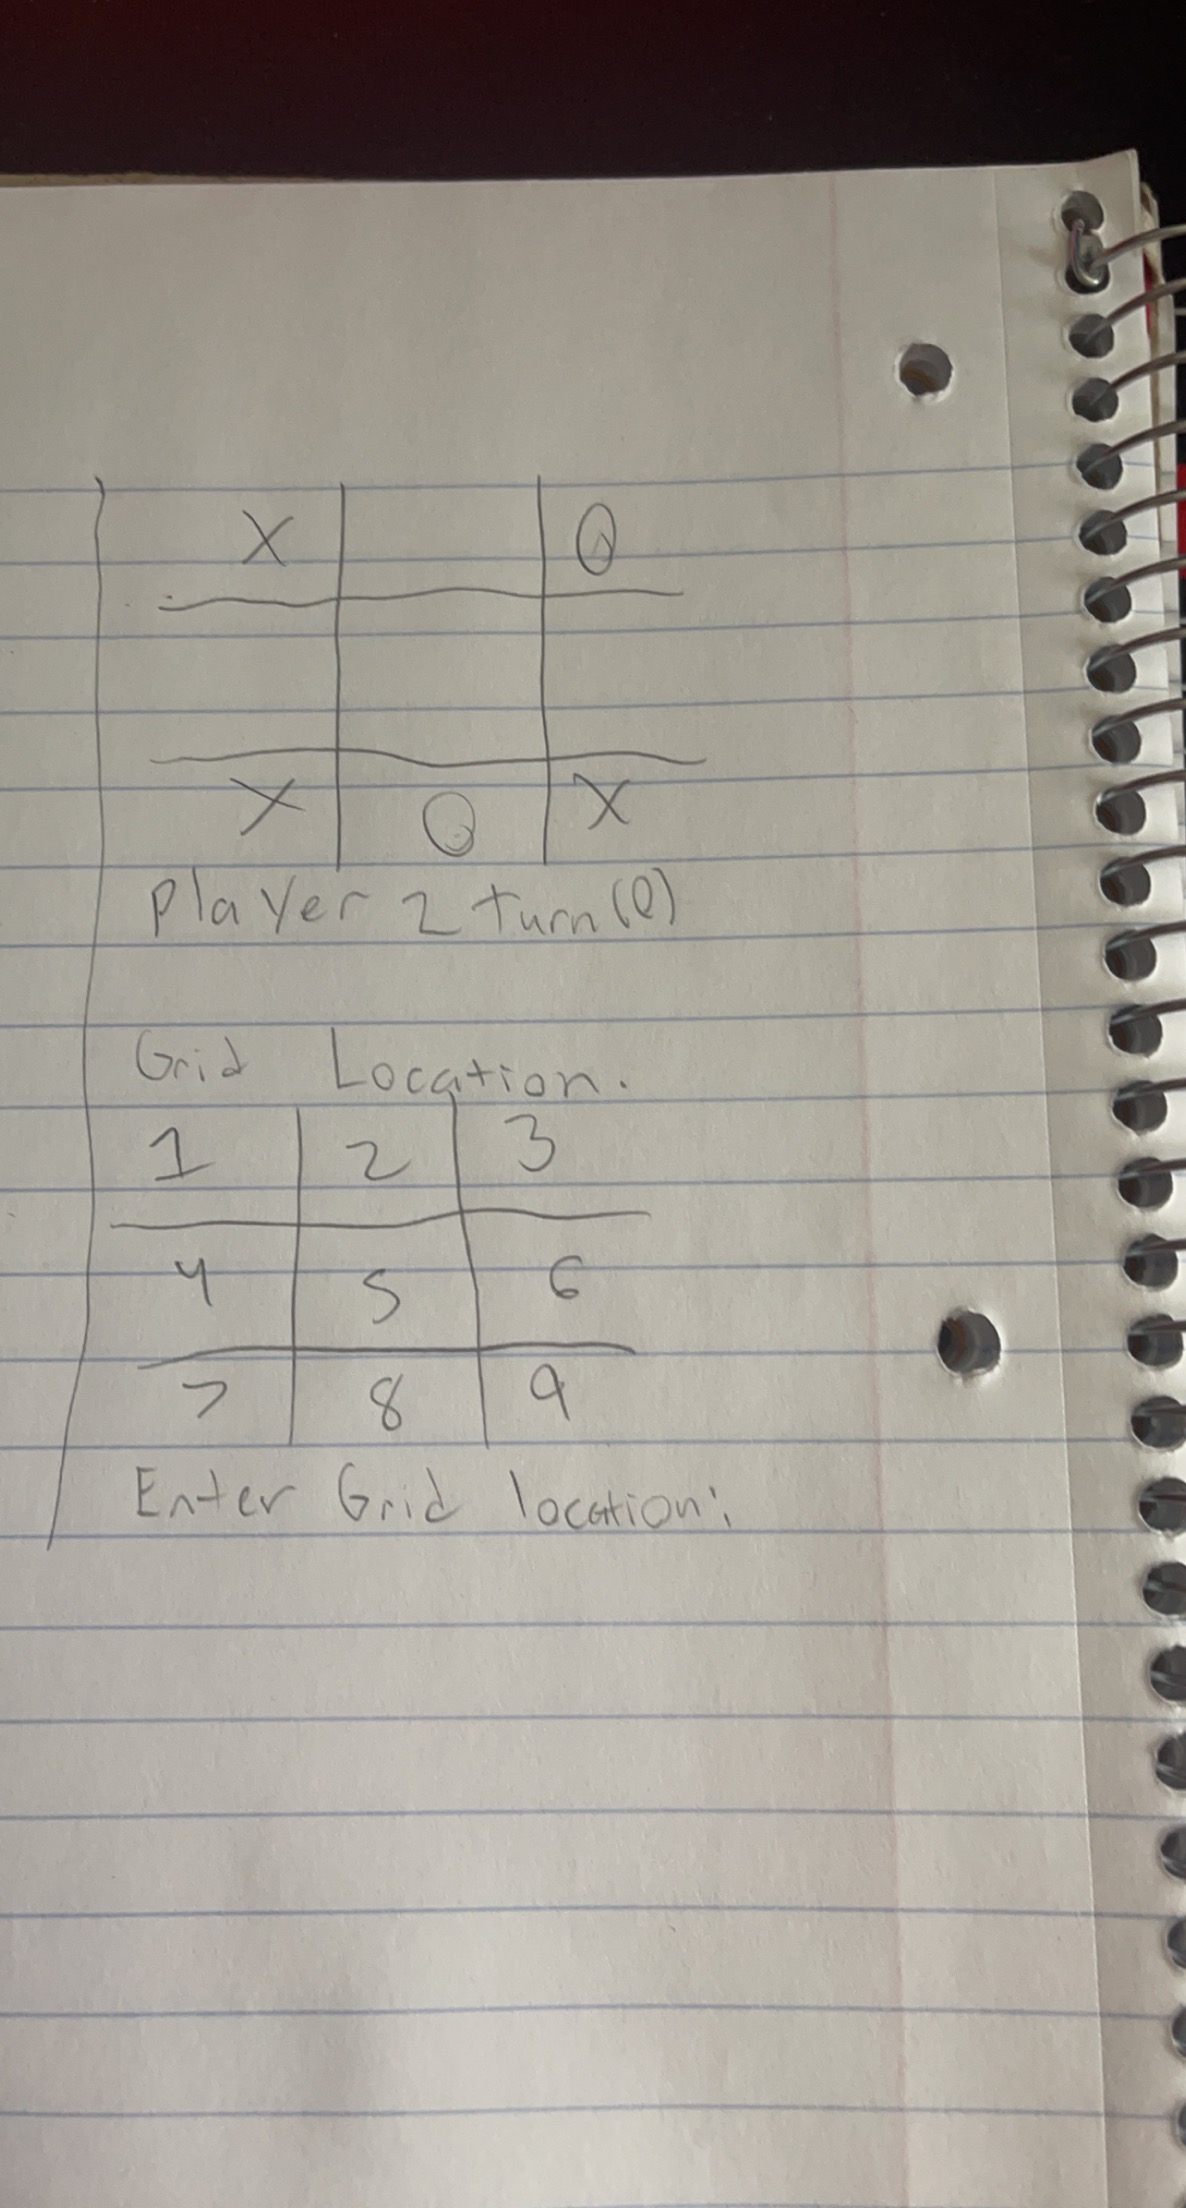 X O
X O X
Player 2 turn (O)
Grid Location.
1 2 3
4 5 6
7 8 9
Enter Grid location: